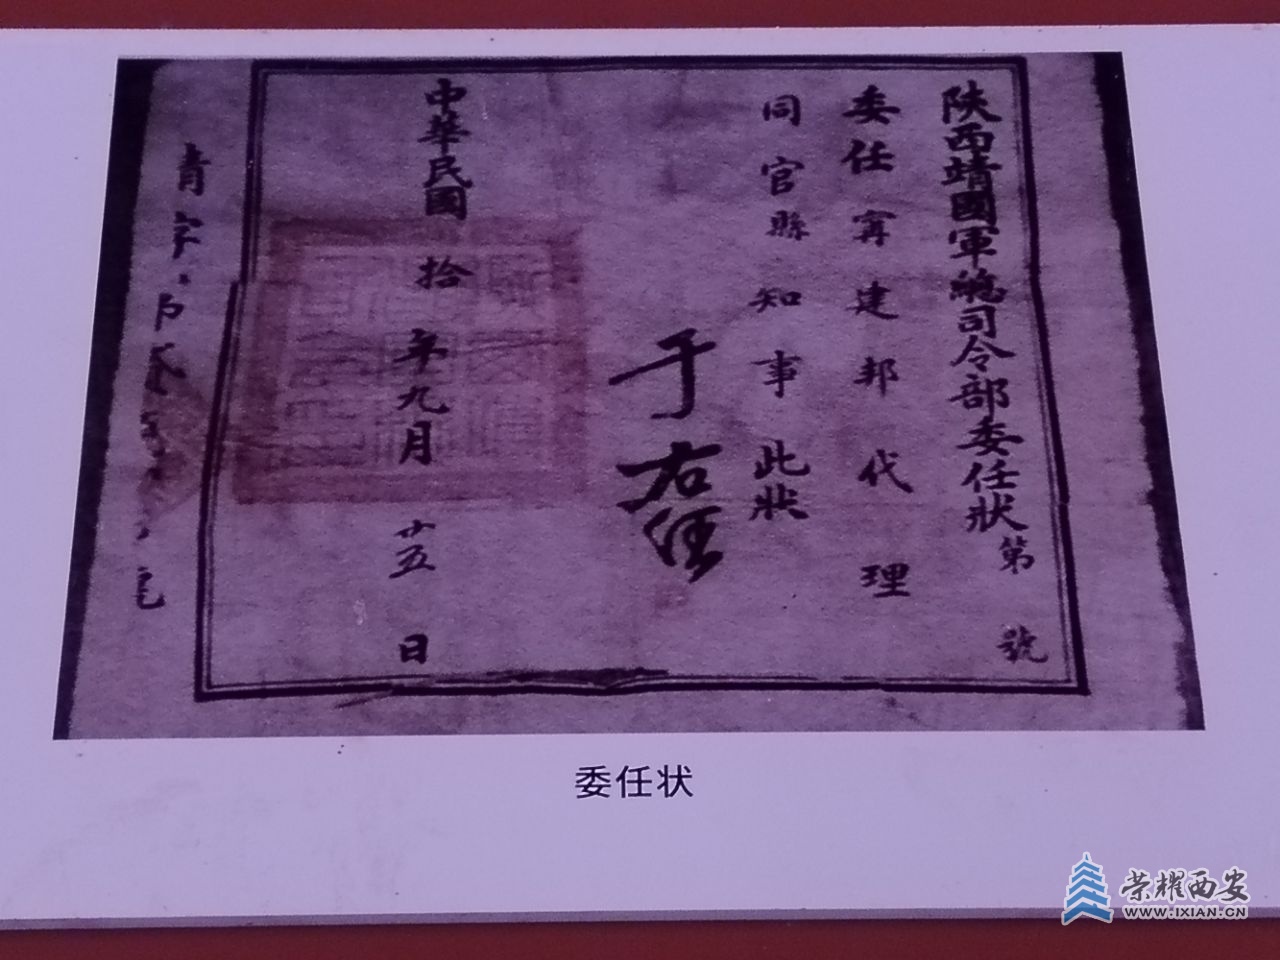 陕西靖國軍總司令部委任狀第 號
委任甯建邦代理
同官縣知事此狀
于右任
中華民國拾年九月廿五日
委任状
荣耀西安
WWW.IXIAN.CN